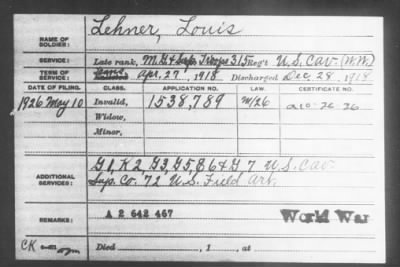 NAME OF SOLDIER: Lehner, Louis
SERVICE: Late rank, M.G. & Sup. Troops 315 Reg't U.S. Cav. (W.W.)
TERM OF SERVICE: Apr. 27, 1918 Discharged Dec. 28, 1918
DATE OF FILING. CLASS. APPLICATION NO. LAW. CERTIFICATE NO.
1926 May 10 Invalid, 1538,789 m/26
Widow,
Minor,
ADDITIONAL SERVICES: G 1, K 2, G 3, G 5, E 6 & G 7 U.S. Cav.
Sup. Co. 72 U.S. Field Art.
REMARKS: A 2 642 467 World War
CK Died , 1 , at